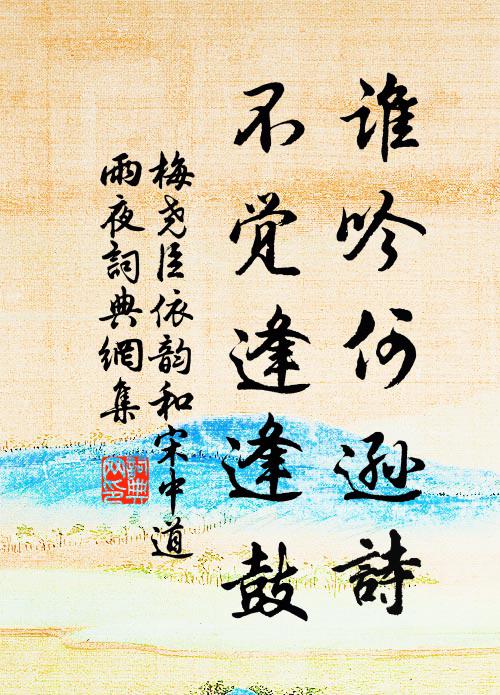 谁吟何逊詩
不觉逢逢鼓
梅尧臣依韵和宋中道
雨夜詞典網集